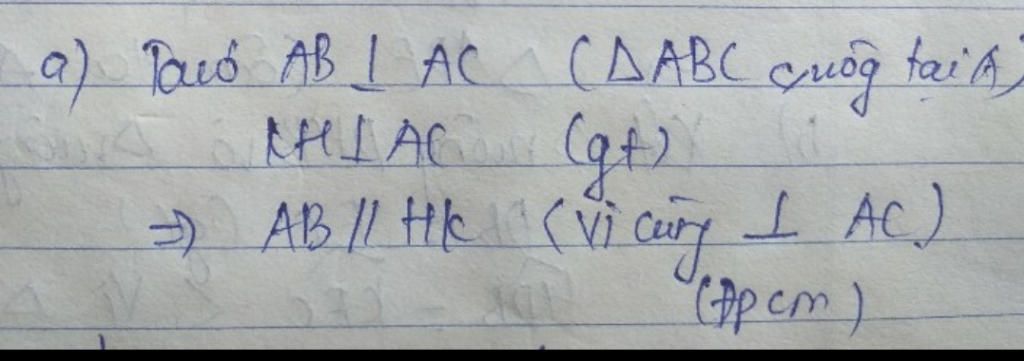 a) Ta có AB ⊥ AC (ΔABC vuông tại A)
KH ⊥ AC (gt)
⇒ AB // HK (Vì cùng ⊥ AC)
(Đpcm)